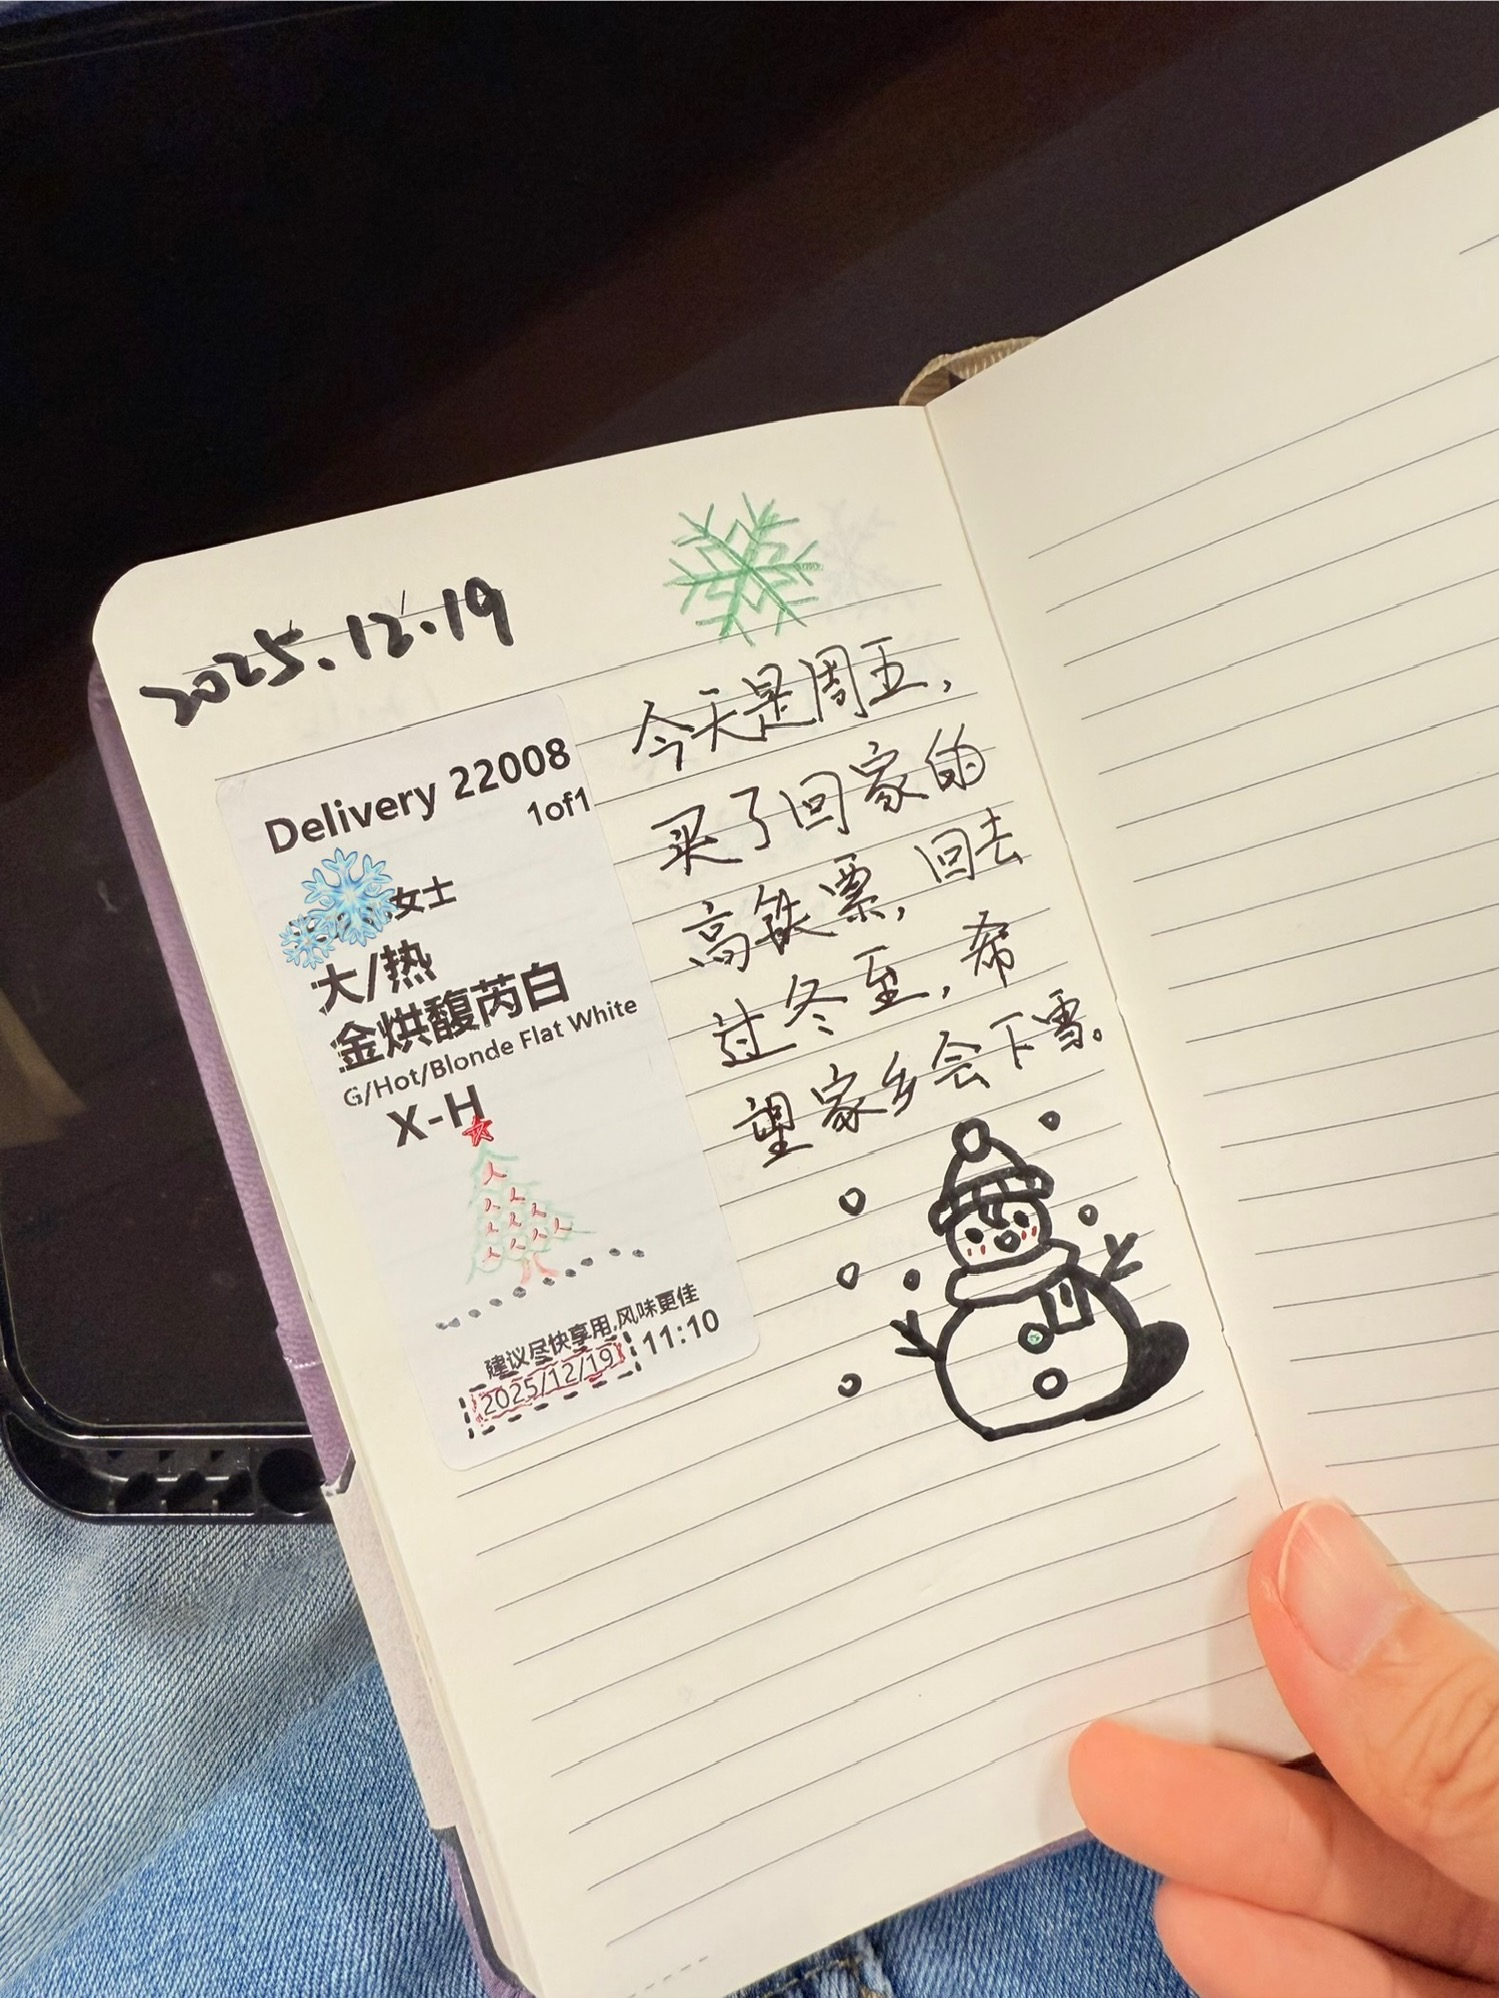 2025.12.19
Delivery 22008
1of1
女士
大/热
金烘馥芮白
G/Hot/Blonde Flat White
X-H
建议尽快享用,风味更佳
2025/12/19 11:10
今天是周五,
买了回家的
高铁票,回去
过冬至,希
望家乡会下雪。